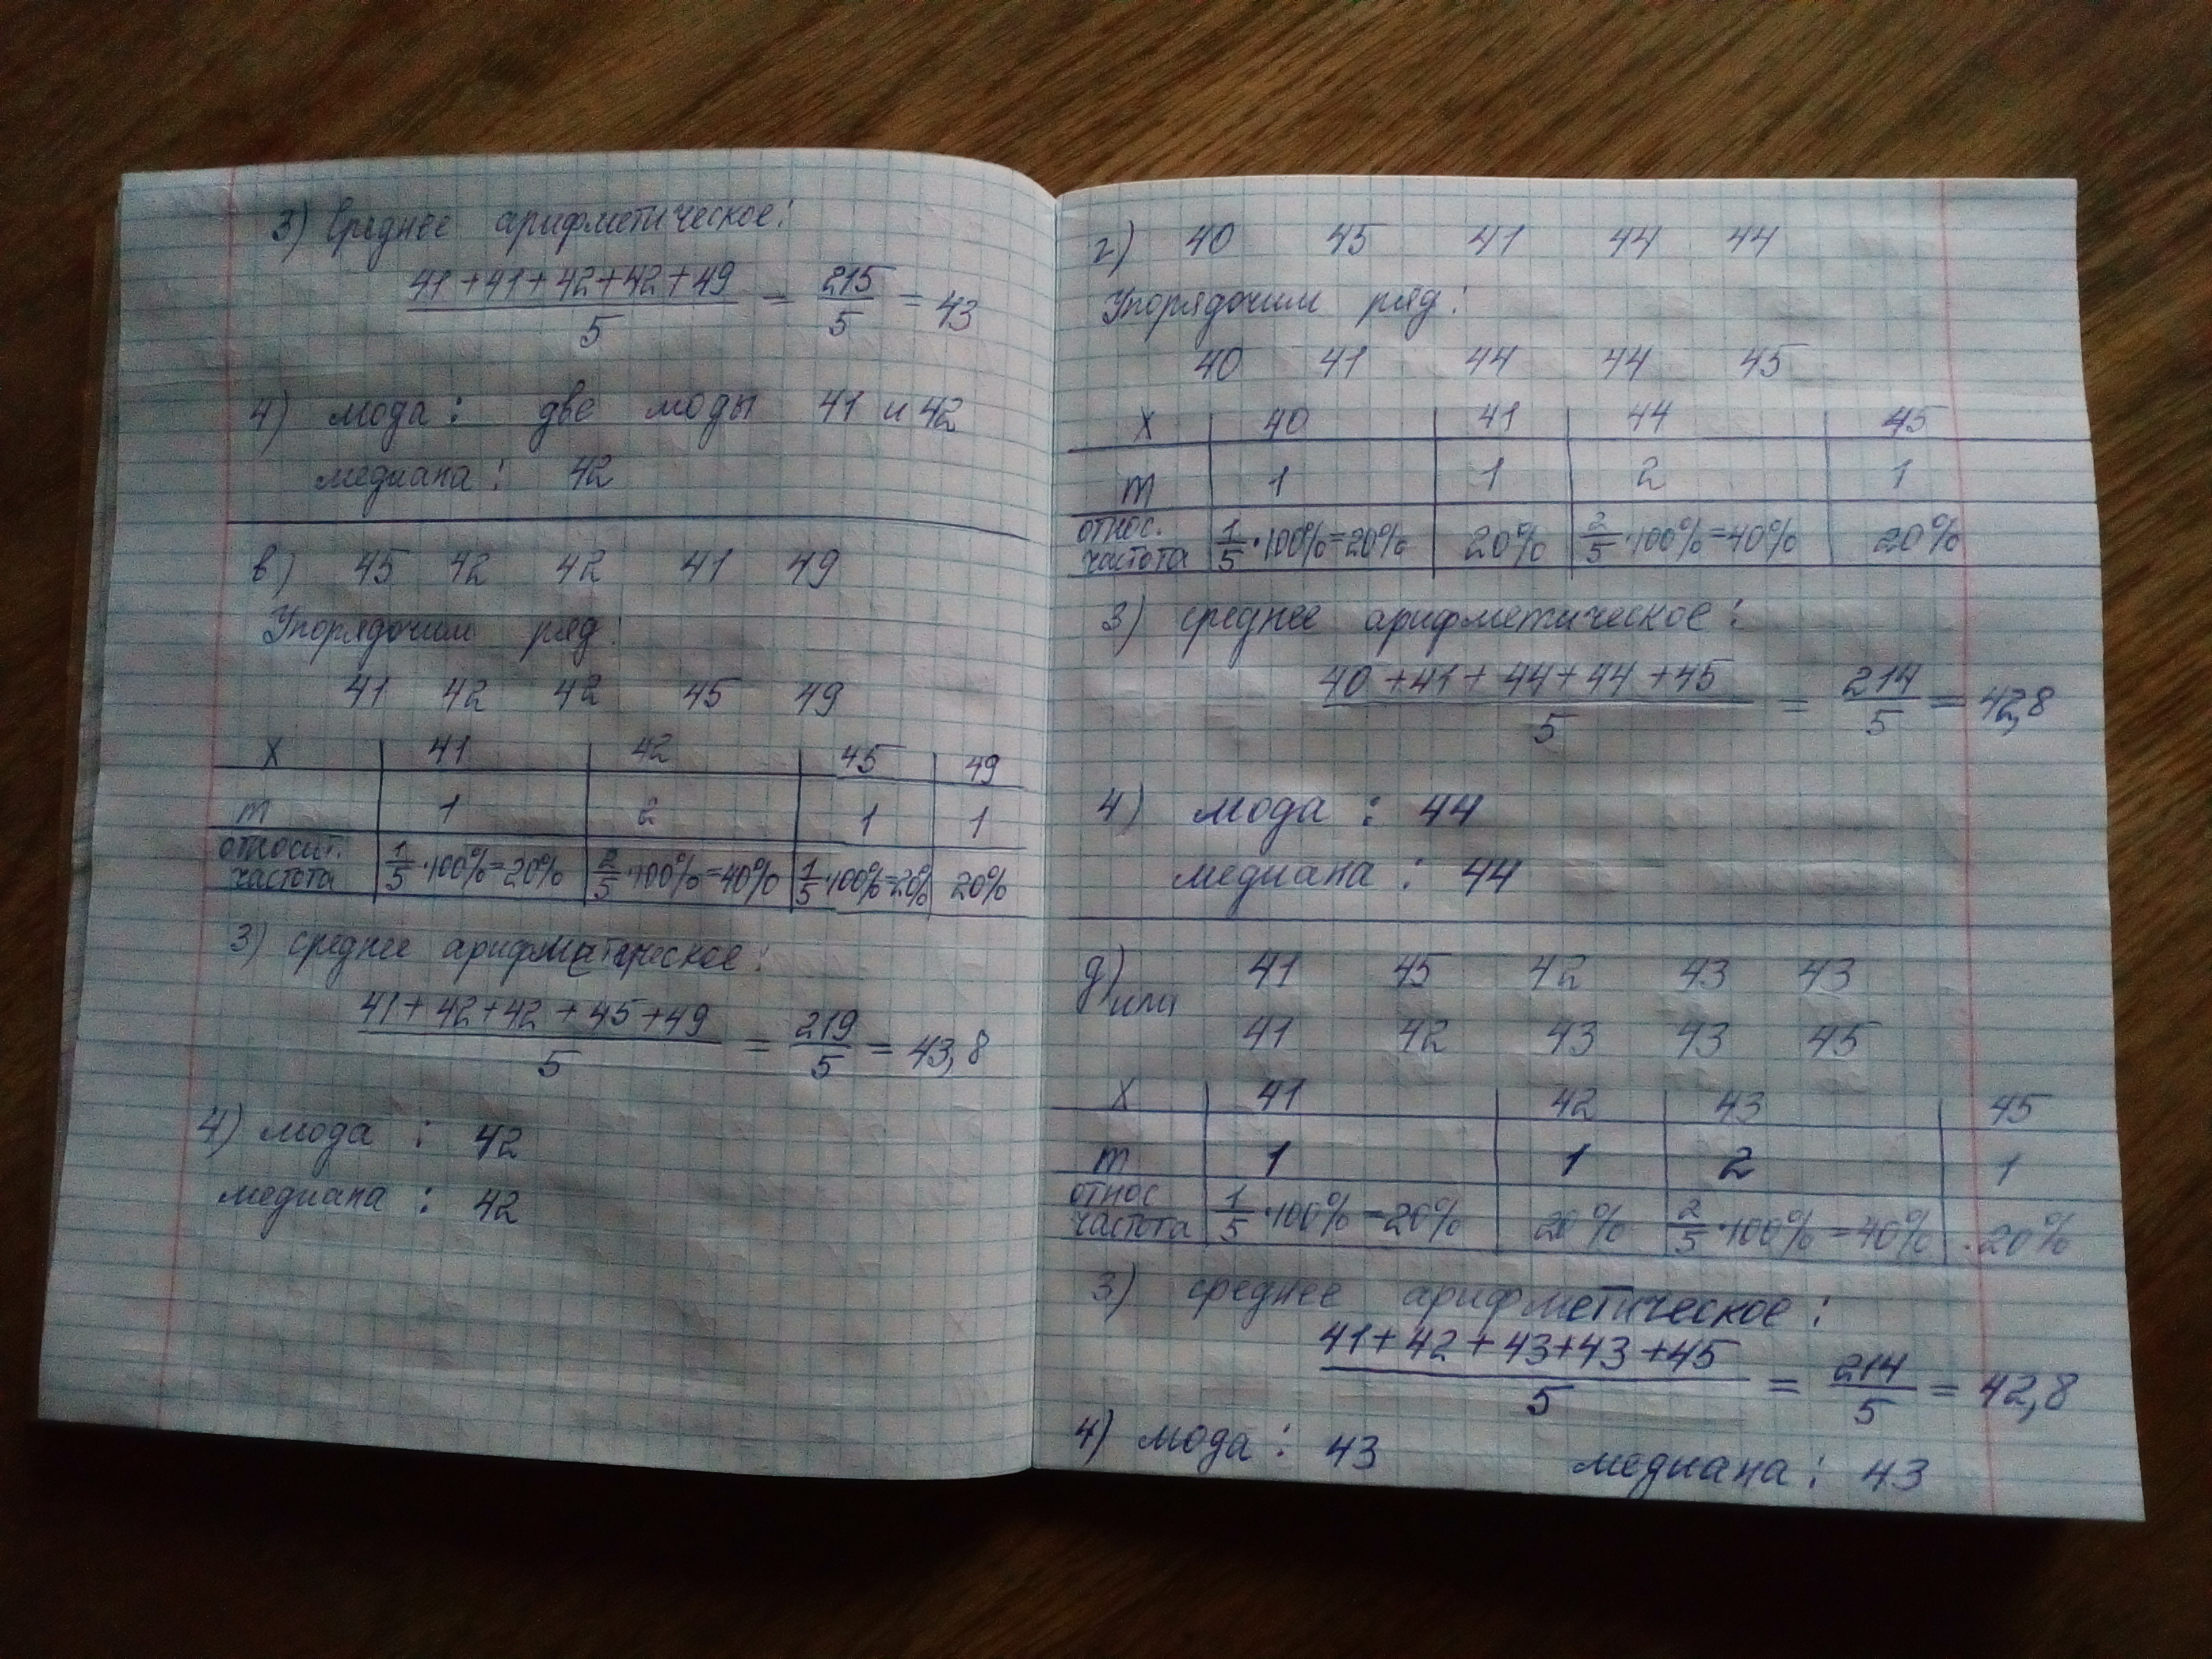 3) Среднее арифметическое:
41+41+42+42+49 / 5 = 215/5 = 43
4) мода: две моды 41 и 42
медиана: 42
в) 45 42 42 41 49
Упорядочим ряд:
41 42 42 45 49
x 41 42 45 49
m 1 2 1 1
относит. частота 1/5·100%=20% 2/5·100%=40% 1/5·100%=20% 20%
3) среднее арифметическое:
41+42+42+45+49 / 5 = 219/5 = 43,8
4) мода: 42
медиана: 42
г) 40 45 41 44 44
Упорядочим ряд:
40 41 44 44 45
x 40 41 44 45
m 1 1 2 1
относ. частота 1/5·100%=20% 20% 2/5·100%=40% 20%
3) среднее арифметическое:
40+41+44+44+45 / 5 = 214/5 = 42,8
4) мода: 44
медиана: 44
д) 41 45 42 43 43
или
41 42 43 43 45
x 41 42 43 45
m 1 1 2 1
относ частота 1/5·100%=20% 20% 2/5·100%=40% 20%
3) среднее арифметическое:
41+42+43+43+45 / 5 = 214/5 = 42,8
4) мода: 43 медиана: 43